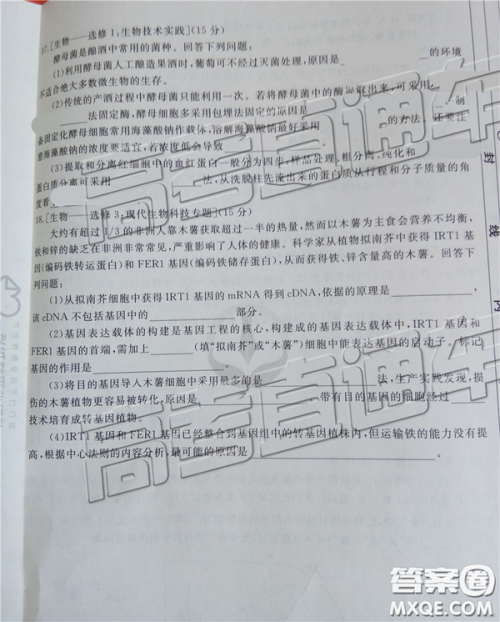 37.[生物——选修1:生物技术实践](15分)
酵母菌是酿酒中常用的菌种。回答下列问题:
(1)利用酵母菌人工酿造果酒时,葡萄可不经过灭菌处理,原因是 的环境
不适合绝大多数微生物的生存。
(2)传统的产酒过程中酵母菌只能利用一次。若将酵母菌中的酶 出来,可采用
法固定酶,酵母细胞多采用包埋法固定的原因是 。制
备固定化酵母细胞常用海藻酸钠作载体,溶解海藻酸钠最好采用 的方法,还要注
意海藻酸钠的浓度要适宜,若浓度低会导致
(3)提取和分离红细胞中的血红蛋白一般分为四步,样品处理,粗分离,纯化和
蛋白质分离可采用 法,从洗脱柱先流出来的蛋白质从行程和分子质量的角
度看
38.[生物——选修3:现代生物科技专题](15分)
大约有超过1/3的非洲人靠木薯获取超过一半的热量,然而以木薯为主食会营养不均衡,
铁和锌的缺乏在非洲非常常见,严重影响了人体的健康。科学家从植物拟南芥中获得IRT1基
因(编码铁转运蛋白)和FER1基因(编码铁储存蛋白),从而获得铁、锌含量高的木薯。回答下
列问题:
(1)从拟南芥细胞中获得IRT1基因的mRNA得到cDNA,依据的原理是 ,
该cDNA不包括基因中的 部分。
(2)基因表达载体的构建是基因工程的核心,构建成的基因表达载体中,IRT1基因和
FER1基因的首端,需加上 (填“拟南芥”或“木薯”)细胞中能表达基因的启动子。标记
基因的作用是
(3)将目的基因导入木薯细胞中采用最多的是 法,生产实践发现,损
伤的木薯植物更容易被转化,原因是 ,带有目的基因的细胞经过
技术培育成转基因植物。
(4)IRT1基因和FER1基因已经整合到基因组中的转基因植株内,但运输铁的能力没有提
高,根据中心法则的内容分析,最可能的原因是
封
线
内
高考直通车
高考直通车
高考直通车
答案圈
MXQE.COM